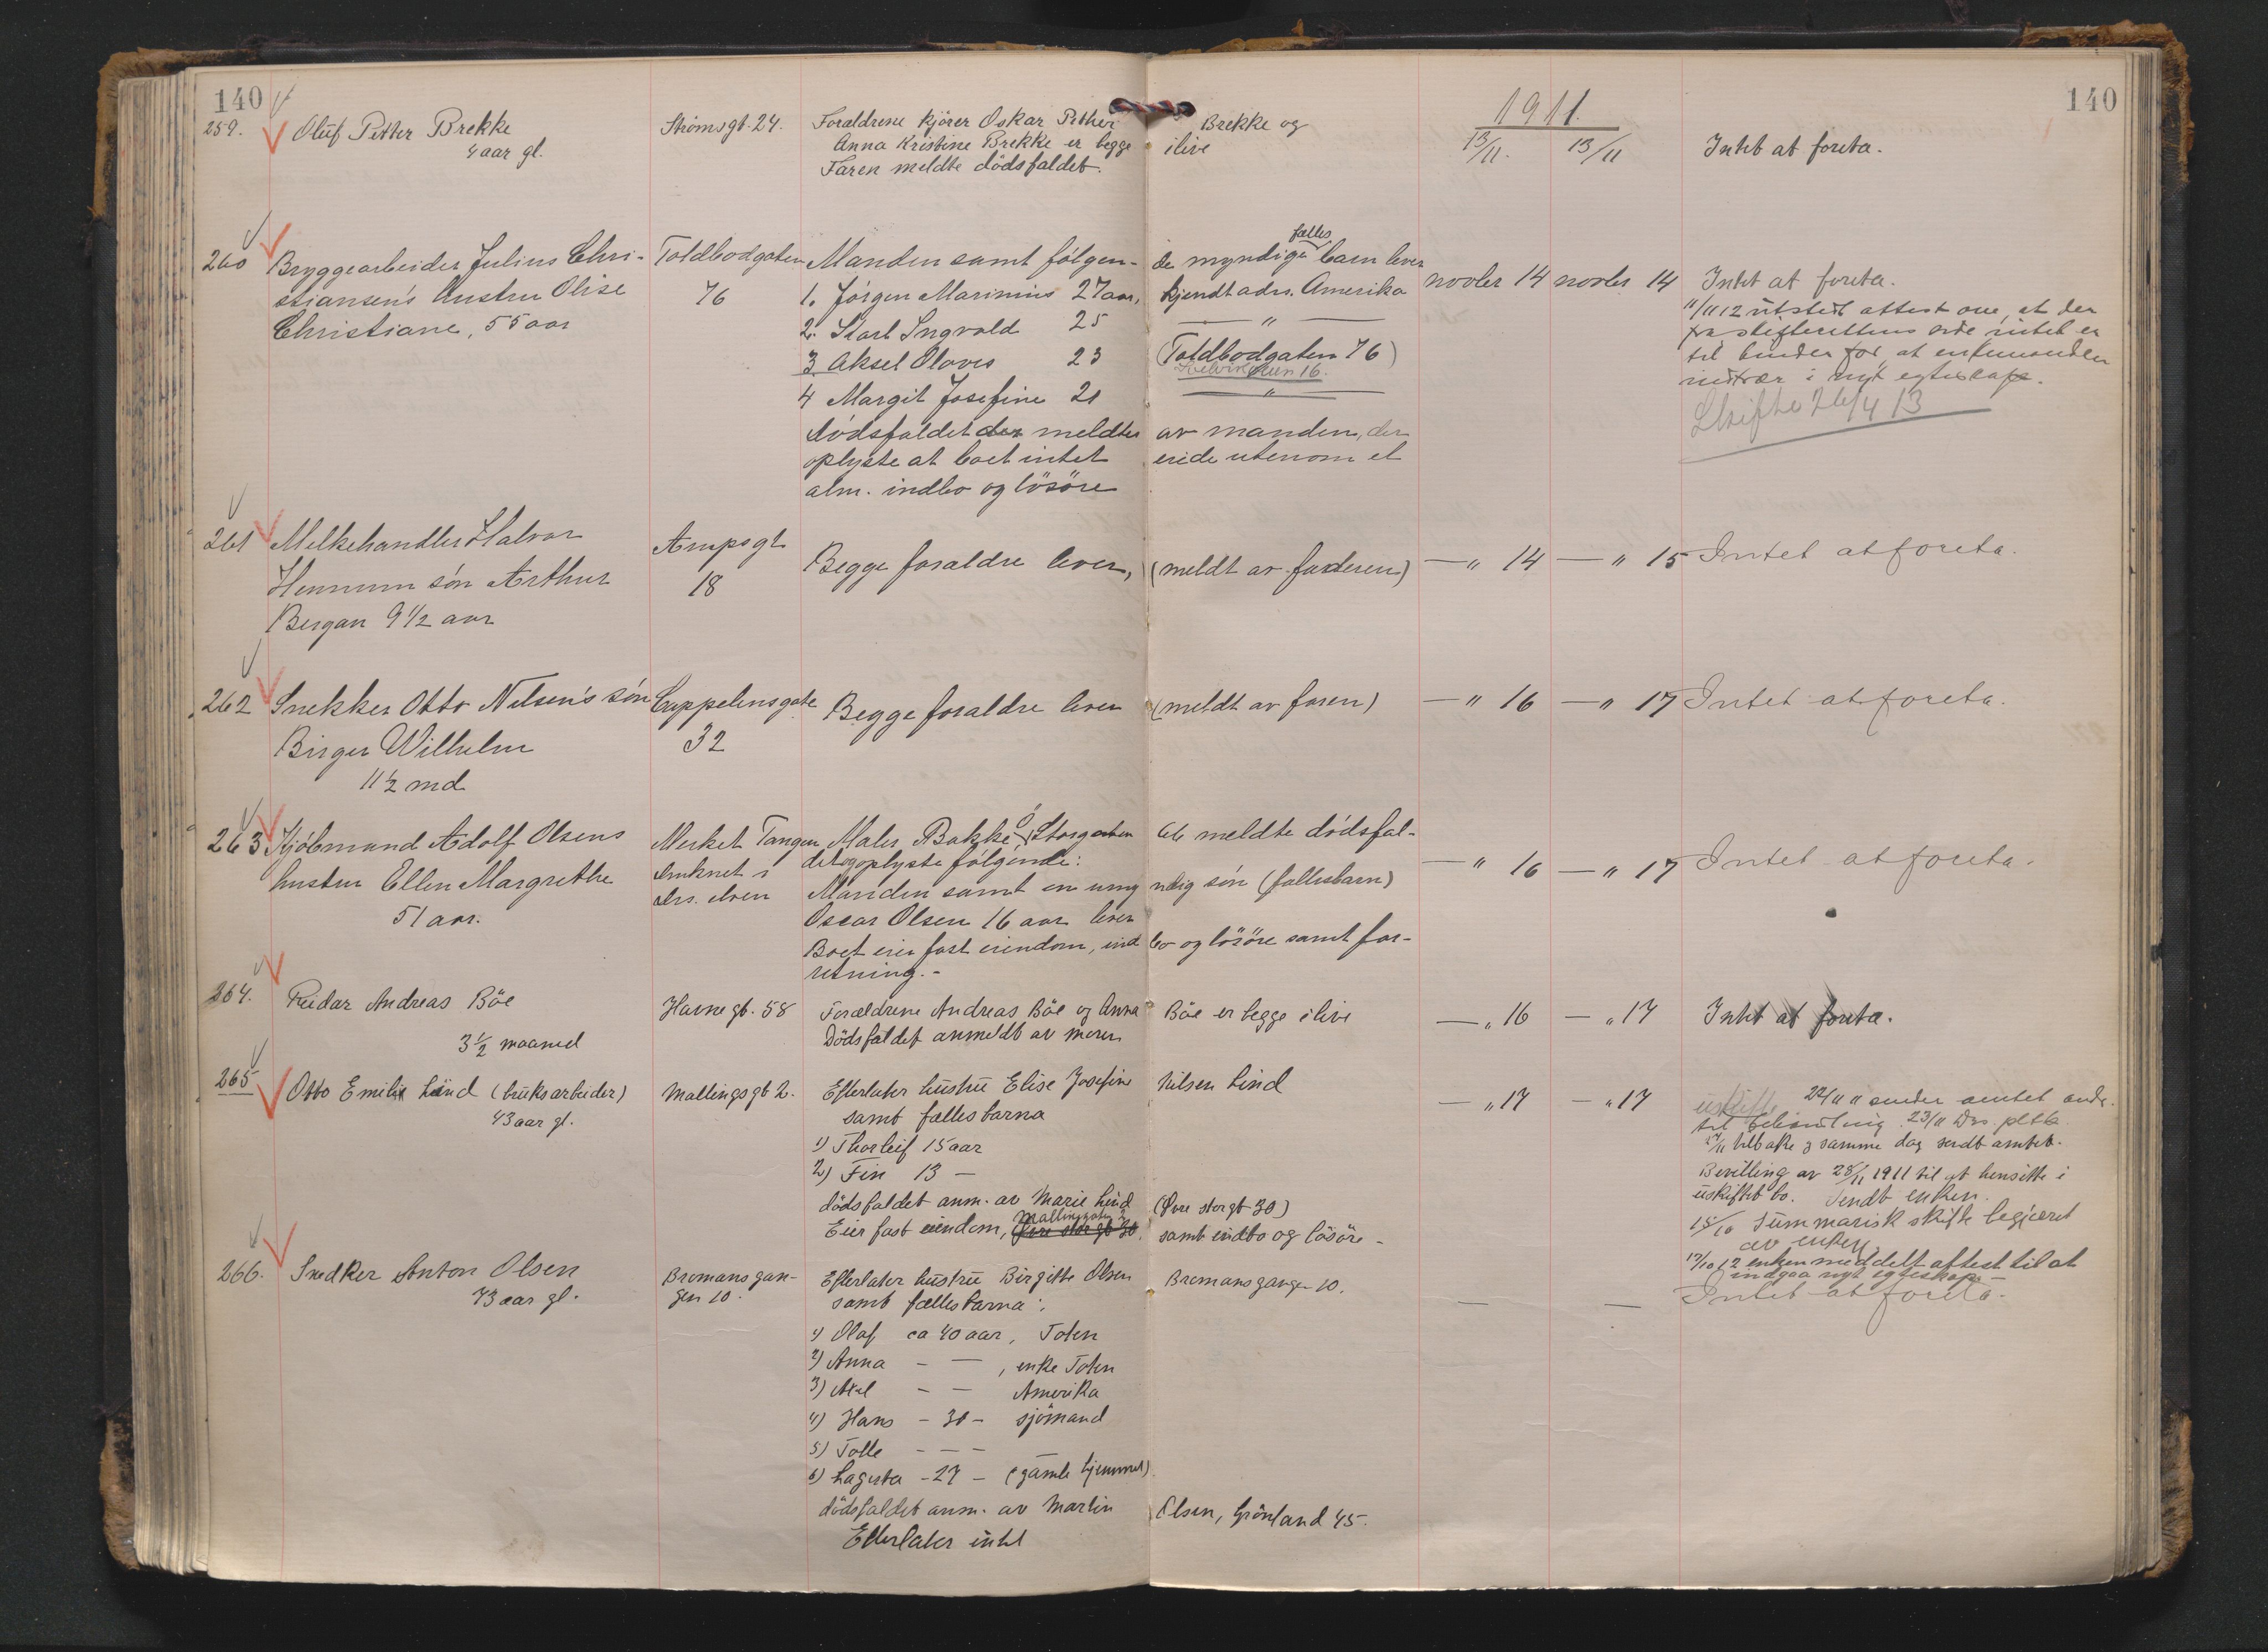 140
140
1911.
259. Oluf Petter Brekke Strømsgt. 24. Forældrene kjører Oskar Petter Brekke og 13/11. 13/11 Intet at foreta.
4 aar gl. Anna Kristine Brekke er begge ilive
Faren meldte dödsfaldet.
260 Bryggearbeider Julius Chri- Toldbodgaten Manden samt følgen- de myndige fælles barn lever novbr 14 novbr 14 Intet at foreta.
stiansen's hustru Olise 76 1. Jörgen Marinius 27 aar, kjendt adrs. Amerika
Christiane, 55 aar 2. Karl Ingvald 25 — " —
11/11 12 utstedt attest om, at der
fra skifterettens side intet er
til hinder for, at enkemanden
indtrær i nyt egteskap.
3 Aksel Olaves 23 (Toldbodgaten 76)
16.
4 Margit Josefine 21 — " —
Skifte 26/4 13
dödsfaldet der meldtes av manden, der
oplyste at boet intet eiede utenom et
alm. indbo og lösöre
261 Melkehandler Halvor Ampsgt Begge foraldre lever, (meldt av faderen) — " 14 — " 15 Intet at foreta.
Hennum sön Arthur 18
Bergan 9 1/2 aar
262 Snekker Otto Nilsen's sön Cappelensgate Begge foraldre lever (meldt av faren) — " 16 — " 17 Intet at foreta.
Birger Wilhelm 32
11 1/2 md
263 Kjöbmand Adolf Olsens Merket Tangen Maler Bakke, Ö Storgaten 66 meldte dödsfal-
hustru Ellen Margrethe druknet i det og oplyste følgende: — " 16 — " 17 Intet at foreta.
51 aar. Drs. elven Manden samt en umyndig sön (fællesbarn)
Oscar Olsen 16 aar lever
Boet eier fast eiendom, indbo og lösöre samt for-
retning.-
264. Reidar Andreas Böe Havnegt. 58 Forældrene Andreas Böe og Anna Böe er begge ilive — " 16 — " 17 Intet at foreta.
3 1/2 maaned Dödsfaldet anmeldt av moren
265 Otto Emil Lind (bruksarbeider) Mallingsgt 2. Efterlater hustru Elise Josefine Nilsen Lind — " 17 — " 17
43 aar gl. samt fællesbarna
1) Thorleif 15 aar
2) Fin 13 —
dödsfaldet anm. av Marie Lind (Øvre storgt 30)
Eier fast eiendom, Øvre storgt 30. Mallingsgaten 2 samt indbo og lösöre -
uskifte 22/11 " sender amtet andr.
til behandling. 23/11 Drs. pltk.
27/11 tilbake & samme dag sendt amtet.
Bevilling av 28/11 1911 til at hensitte i
uskiftet bo. Sendt enken.
15/10 Summarisk skifte begjæret
av enken.
17/10 12 enken meddelt attest til at
indgaa nyt egteskap. -
266. Snedker Anton Olsen Bremansgan- Efterlater hustru Birgitte Olsen Bremansgangen 10. — — Intet at foreta.
73 aar gl. gen 10. samt fællesbarna:
1) Olaf ca 40 aar, Toten
2) Anna - — , enke Toten
3) Axel - — Amerika
4) Hans - 30 - sjömand
5) Tolle - — -
6) Lagerta - 27 - (gamle hjemmet).
dödsfaldet anm. av Martin Olsen, Grönland 45.
Efterlater intet